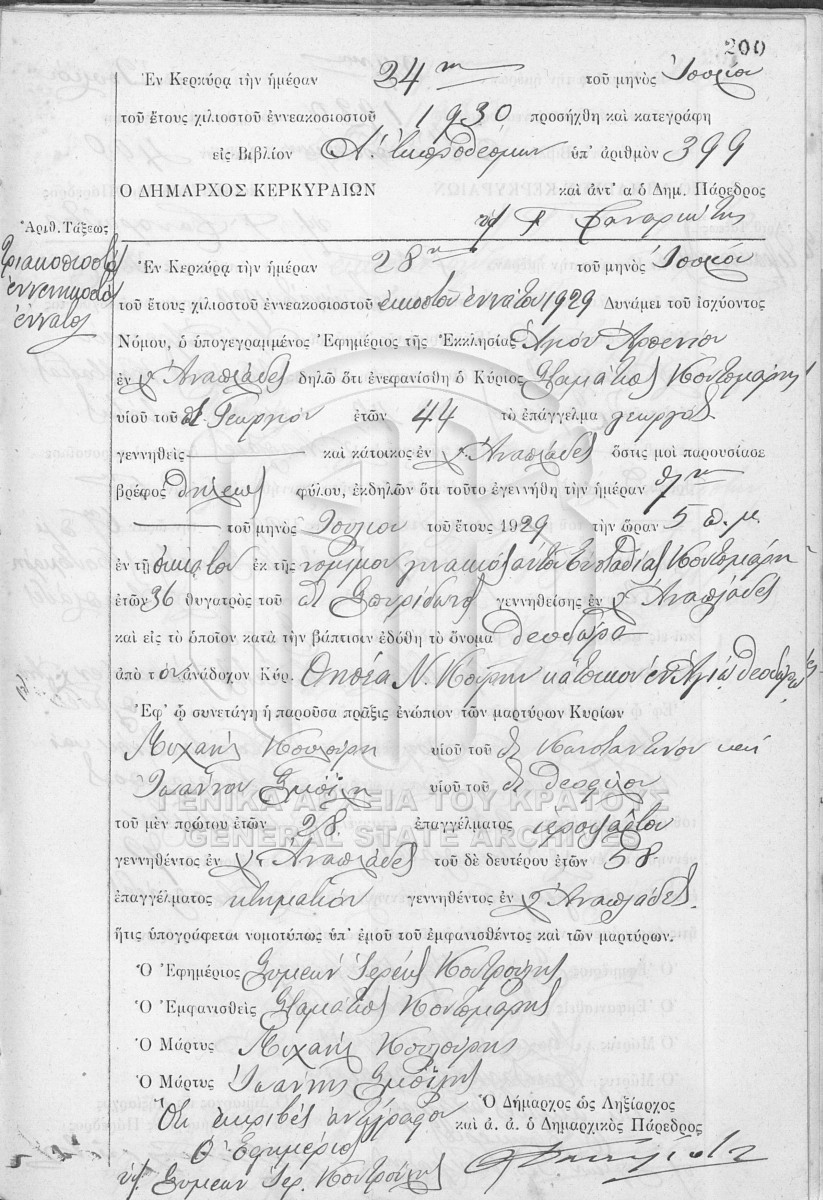 200
Ἐν Κερκύρᾳ τὴν ἡμέραν 24ην τοῦ μηνὸς
τοῦ ἔτους χιλιοστοῦ ἐννεακοσιοστοῦ 1930 προσήχθη καὶ κατεγράφη
εἰς Βιβλίον ὑπ' ἀριθμὸν 399
Ο ΔΗΜΑΡΧΟΣ ΚΕΡΚΥΡΑΙΩΝ καὶ ἀντ' α ὁ Δημ. Πάρεδρος
Ἀριθ. Τάξεως
Τριακοσιοστὸν
ἐννενηκοστὸν
ἔννατον
Ἐν Κερκύρᾳ τὴν ἡμέραν 28ην τοῦ μηνὸς
τοῦ ἔτους χιλιοστοῦ ἐννεακοσιοστοῦ εἰκοστοῦ ἐννάτου 1929 Δυνάμει τοῦ ἰσχύοντος
Νόμου, ὁ ὑπογεγραμμένος Ἐφημέριος τῆς Ἐκκλησίας Ἁγίου Ἀρσενίου
ἐν χ. Ἀναπλάδες δηλῶ ὅτι ἐνεφανίσθη ὁ Κύριος Σταμάτιος Κοντομάρης
υἱοῦ τοῦ Γεωργίου ἐτῶν 44 τὸ ἐπάγγελμα γεωργὸς
γεννηθεὶς καὶ κάτοικος ἐν χ. Ἀναπλάδες ὅστις μοὶ παρουσίασε
βρέφος θήλεως φύλου, ἐκδηλῶν ὅτι τοῦτο ἐγεννήθη τὴν ἡμέραν
τοῦ μηνὸς Ἰουλίου τοῦ ἔτους 1929 τὴν ὥραν 5 π.μ.
ἐν τῇ οἰκίᾳ του ἐκ τῆς νομίμου γυναικὸς αὐτοῦ Εὐσταθίας Κοντομάρη
ἐτῶν 36 θυγατρὸς τοῦ Σπυρίδωνος γεννηθείσης ἐν χ. Ἀναπλάδες
καὶ εἰς τὸ ὁποῖον κατὰ τὴν βάπτισιν ἐδόθη τὸ ὄνομα Θεοδώρα
ἀπὸ τὸν ἀνάδοχον Κύρ. Ν. κάτοικον ἐν Ἁγίῳ
Ἐφ' ᾧ συνετάγη ἡ παροῦσα πρᾶξις ἐνώπιον τῶν μαρτύρων Κυρίων
Μιχαὴλ υἱοῦ τοῦ Κωνσταντίνου καὶ
Ἰωάννου υἱοῦ τοῦ Θεοφίλου
τοῦ μὲν πρώτου ἐτῶν 28 ἐπαγγέλματος ἱεροψάλτου
γεννηθέντος ἐν χ. Ἀναπλάδες τοῦ δὲ δευτέρου ἐτῶν 58
ἐπαγγέλματος κτηματίου γεννηθέντος ἐν χ. Ἀναπλάδες
ἥτις ὑπογράφεται νομοτύπως ὑπ' ἐμοῦ τοῦ ἐμφανισθέντος καὶ τῶν μαρτύρων.
Ὁ Ἐφημέριος Συμεὼν Ἱερεὺς Κουτρούλης
Ὁ Ἐμφανισθεὶς Σταμάτιος Κοντομάρης
Ὁ Μάρτυς Μιχαὴλ
Ὁ Μάρτυς Ἰωάννης
Ὅτι ἀκριβὲς ἀντίγραφον
Ὁ Δήμαρχος ὡς Ληξίαρχος
καὶ ἀ. ἀ. ὁ Δημαρχικὸς Πάρεδρος
Ὁ Ἐφημέριος
Συμεὼν Ἱερ. Κουτρούλης
ΓΕΝΙΚΑ ΑΡΧΕΙΑ ΤΟΥ ΚΡΑΤΟΥΣ
GENERAL STATE ARCHIVES